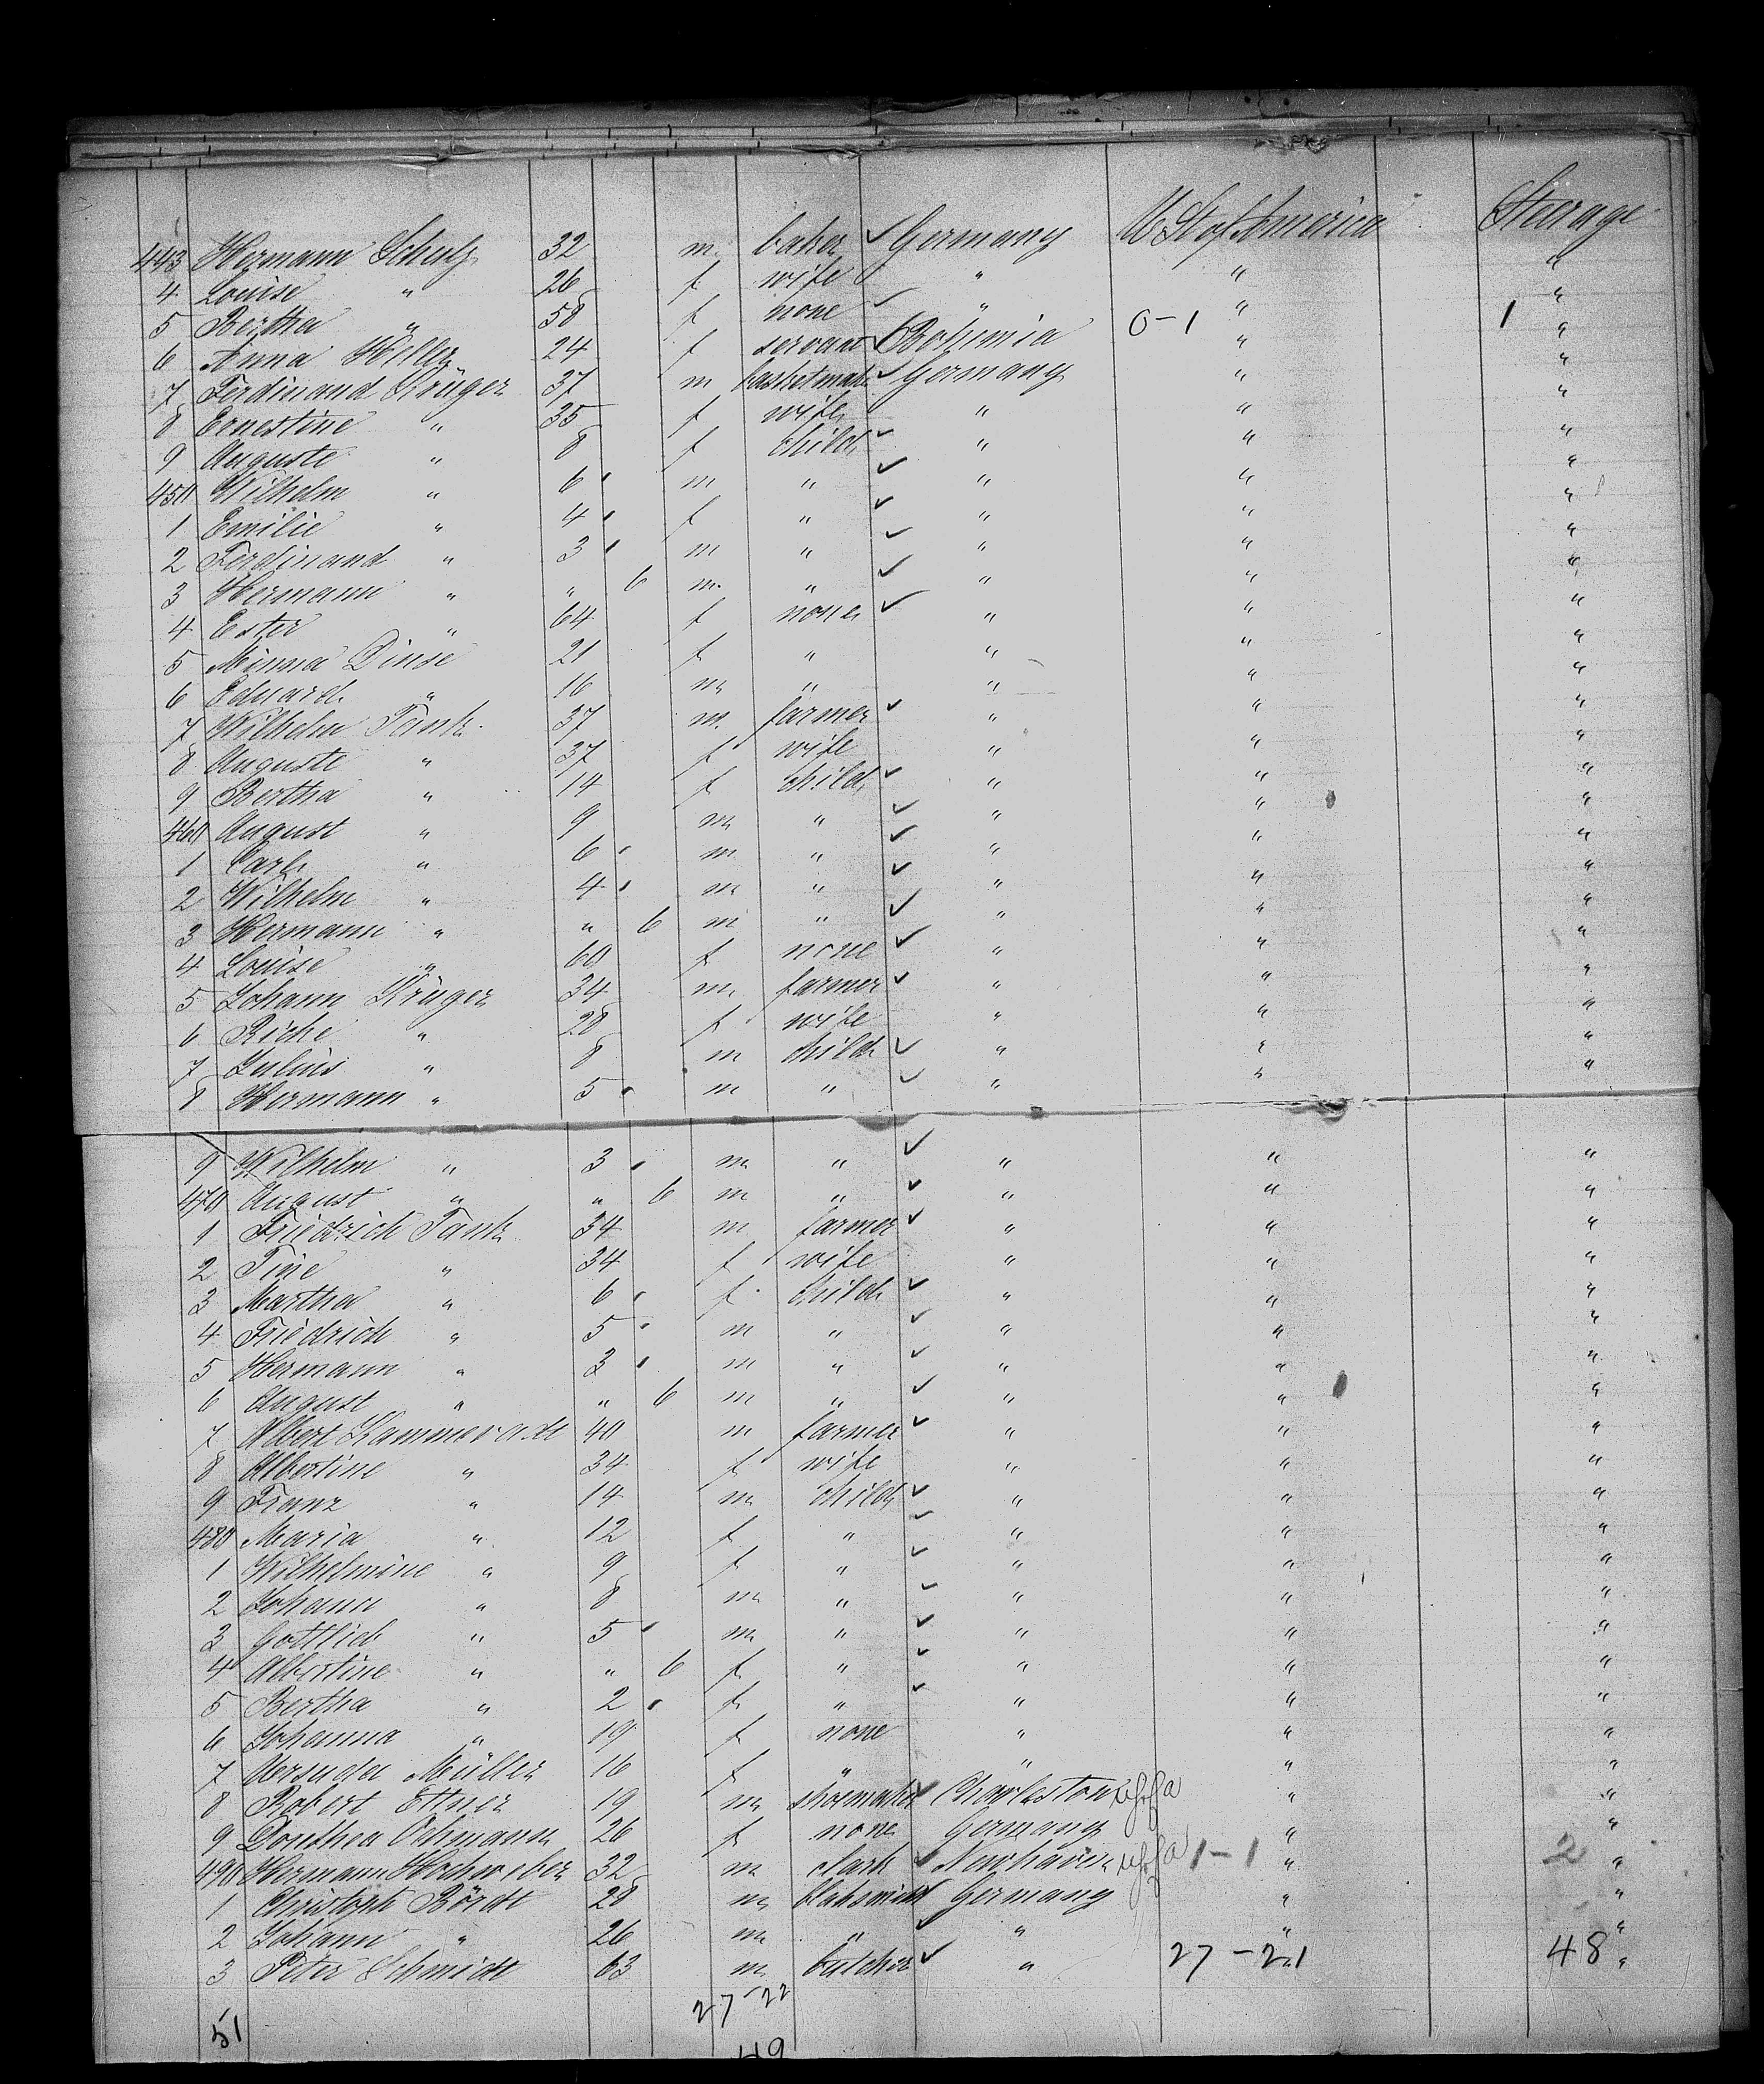 443 Hermann Schulz 32 m. baker ✓ Germany U St of America Steerage
4 Louise " 26 f wife " " "
5 Bertha " 58 f none ✓ " " "
6 Anna Hiller 24 f servant Bohemia 0-1 " 1 "
7 Ferdinand Krüger 37 m basketmak ✓ Germany " "
8 Ernestine " 35 f wife " " "
9 Auguste " 8 f child ✓ " " "
450 Wilhelm " 6 m " ✓ " " "
1 Emilie " 4 f " ✓ " " "
2 Ferdinand " 3 m " ✓ " " "
3 Hermann " " 6 m. " ✓ " " "
4 Ester " 64 f none ✓ " " "
5 Minna Dinse 21 f " " " "
6 Eduard " 16 m " " " "
7 Wilhelm Tank 37 m. farmer ✓ " " "
8 Auguste " 37 f wife " " "
9 Bertha " 14 f child ✓ " " "
460 August " 9 m " ✓ " " "
1 Carl " 6 m " ✓ " " "
2 Wilhelm " 4 m " ✓ " " "
3 Hermann " " 6 m " ✓ " " "
4 Louise " 60 f none ✓ " " "
5 Johann Krüger 34 m. farmer ✓ " " "
6 Riche " 28 f wife " " "
7 Julius " 8 m child ✓ " " "
8 Hermann " 5 m " ✓ " " "
9 Wilhelm " 3 m " ✓ " " "
470 August " " 6 m " ✓ " " "
1 Friedrich Tank 34 m farmer ✓ " " "
2 Tine " 34 f wife " " "
3 Martha " 6 f child ✓ " " "
4 Friedrich " 5 m " ✓ " " "
5 Hermann " 3 m " ✓ " " "
6 August " " 6 m " ✓ " " "
7 Albert Kammeradt 40 m farmer ✓ " " "
8 Albertine " 34 f wife " " "
9 Franz " 14 m child ✓ " " "
480 Maria " 12 f " ✓ " " "
1 Wilhelmine " 9 f " ✓ " " "
2 Johann " 8 m " ✓ " " "
3 Gottlieb " 5 m " ✓ " " "
4 Albertine " " 6 f " ✓ " " "
5 Bertha " 2 f " ✓ " " "
6 Johanna " 19 f none " " "
7 Müller 16 f " " " "
8 Robert Ettner 19 m shoemaker ✓ Charleston " "
9 Dorothea Oehmann 26 f none Germany " "
490 Hermann Hochweber 32 m clark ✓ Newhaven 1-1 " 2 "
1 Christoph Bördt 28 m blaksmidt Germany " "
2 Johann " 26 m " ✓ " " "
3 Peter Schmidt 63 m butcher ✓ " 27-21 " 48 "
27-22
51
49